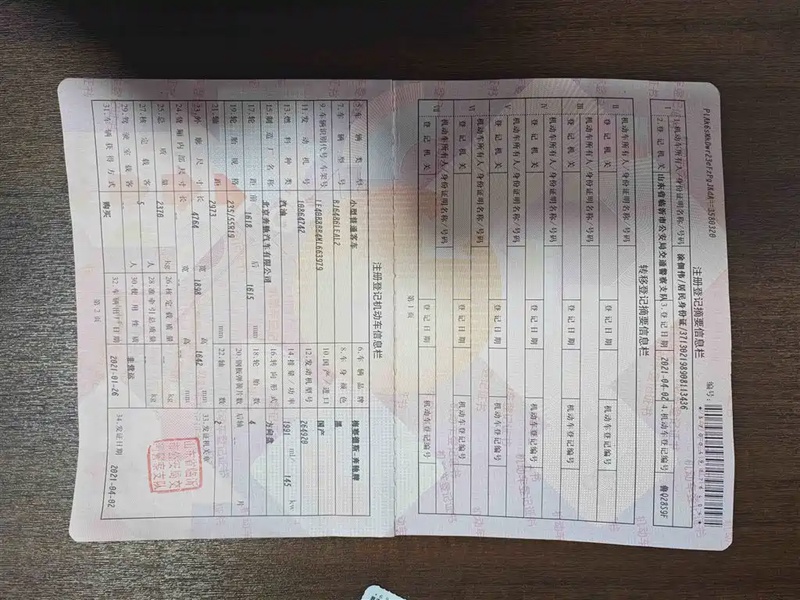 注册登记摘要信息栏
编号:
1.机动车所有人/身份证明名称/号码 涂佃伟/居民身份证/371302198908113436
2.登记机关 山东省临沂市公安局交通警察支队 3.登记日期 2021-04-02 4.机动车登记编号 鲁Q28S9F
转移登记摘要信息栏
II 机动车所有人/身份证明名称/号码
登记机关 登记日期 机动车登记编号
III 机动车所有人/身份证明名称/号码
登记机关 登记日期 机动车登记编号
IV 机动车所有人/身份证明名称/号码
登记机关 登记日期 机动车登记编号
V 机动车所有人/身份证明名称/号码
登记机关 登记日期 机动车登记编号
VI 机动车所有人/身份证明名称/号码
登记机关 登记日期 机动车登记编号
VII 机动车所有人/身份证明名称/号码
登记机关 登记日期 机动车登记编号
第1页
注册登记机动车信息栏
5.车辆类型 小型普通客车 6.车辆品牌 梅赛德斯-奔驰牌
7.车辆型号 8.车身颜色 黑
9.车辆识别代号/车架号 10.国产/进口 国产
11.发动机号 12.发动机型号 264920
13.燃料种类 汽油 14.排量/功率 1991 ml/ 145 kw
15.制造厂名称 北京奔驰汽车有限公司 16.转向形式 方向盘
17.轮距 前 1618 后 1615 mm 18.轮胎数 4
19.轮胎规格 235/55R19 20.钢板弹簧片数 后轴 片
21.轴距 2973 mm 22.轴数 2
23.外廓尺寸 长 4764 宽 1898 高 1642 mm 33.发证机关章
24.货厢内部尺寸 长 宽 高 mm
25.总质量 2370 kg 26.核定载质量 kg
27.核定载客 5 人 28.准牵引总质量 kg
29.驾驶室载客 人 30.使用性质 非营运
31.车辆获得方式 购买 32.车辆出厂日期 2021-01-26 34.发证日期 2021-04-02
第2页